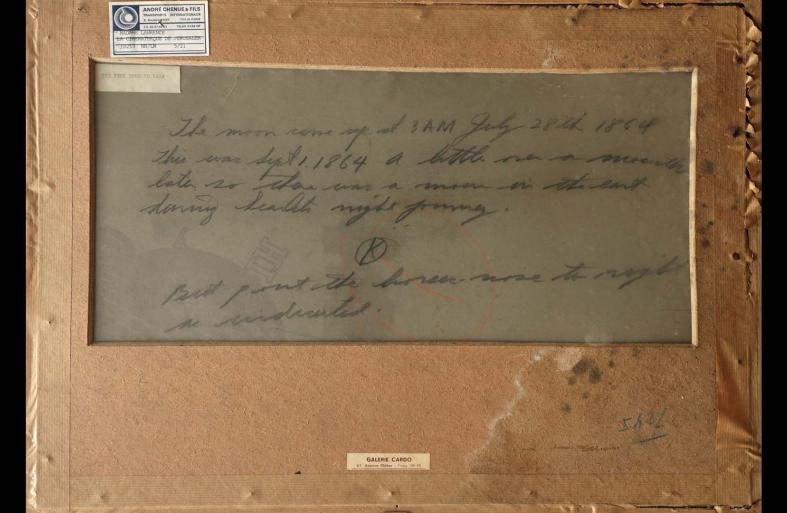 ANDRÉ CHENUE & FILS
TRANSPORTS INTERNATIONAUX
LAURENCE
LA CINEMATHEQUE DE JERUSALEM
5/21
The moon came up at 3 AM July 28th 1864
This was Sept 1, 1864 A little over a month
later so there was a moon in the east
during Scarlets night journey.
K
But point the horses nose to right
as indicated.
GALERIE CARDO
61, Avenue Kléber - Paris